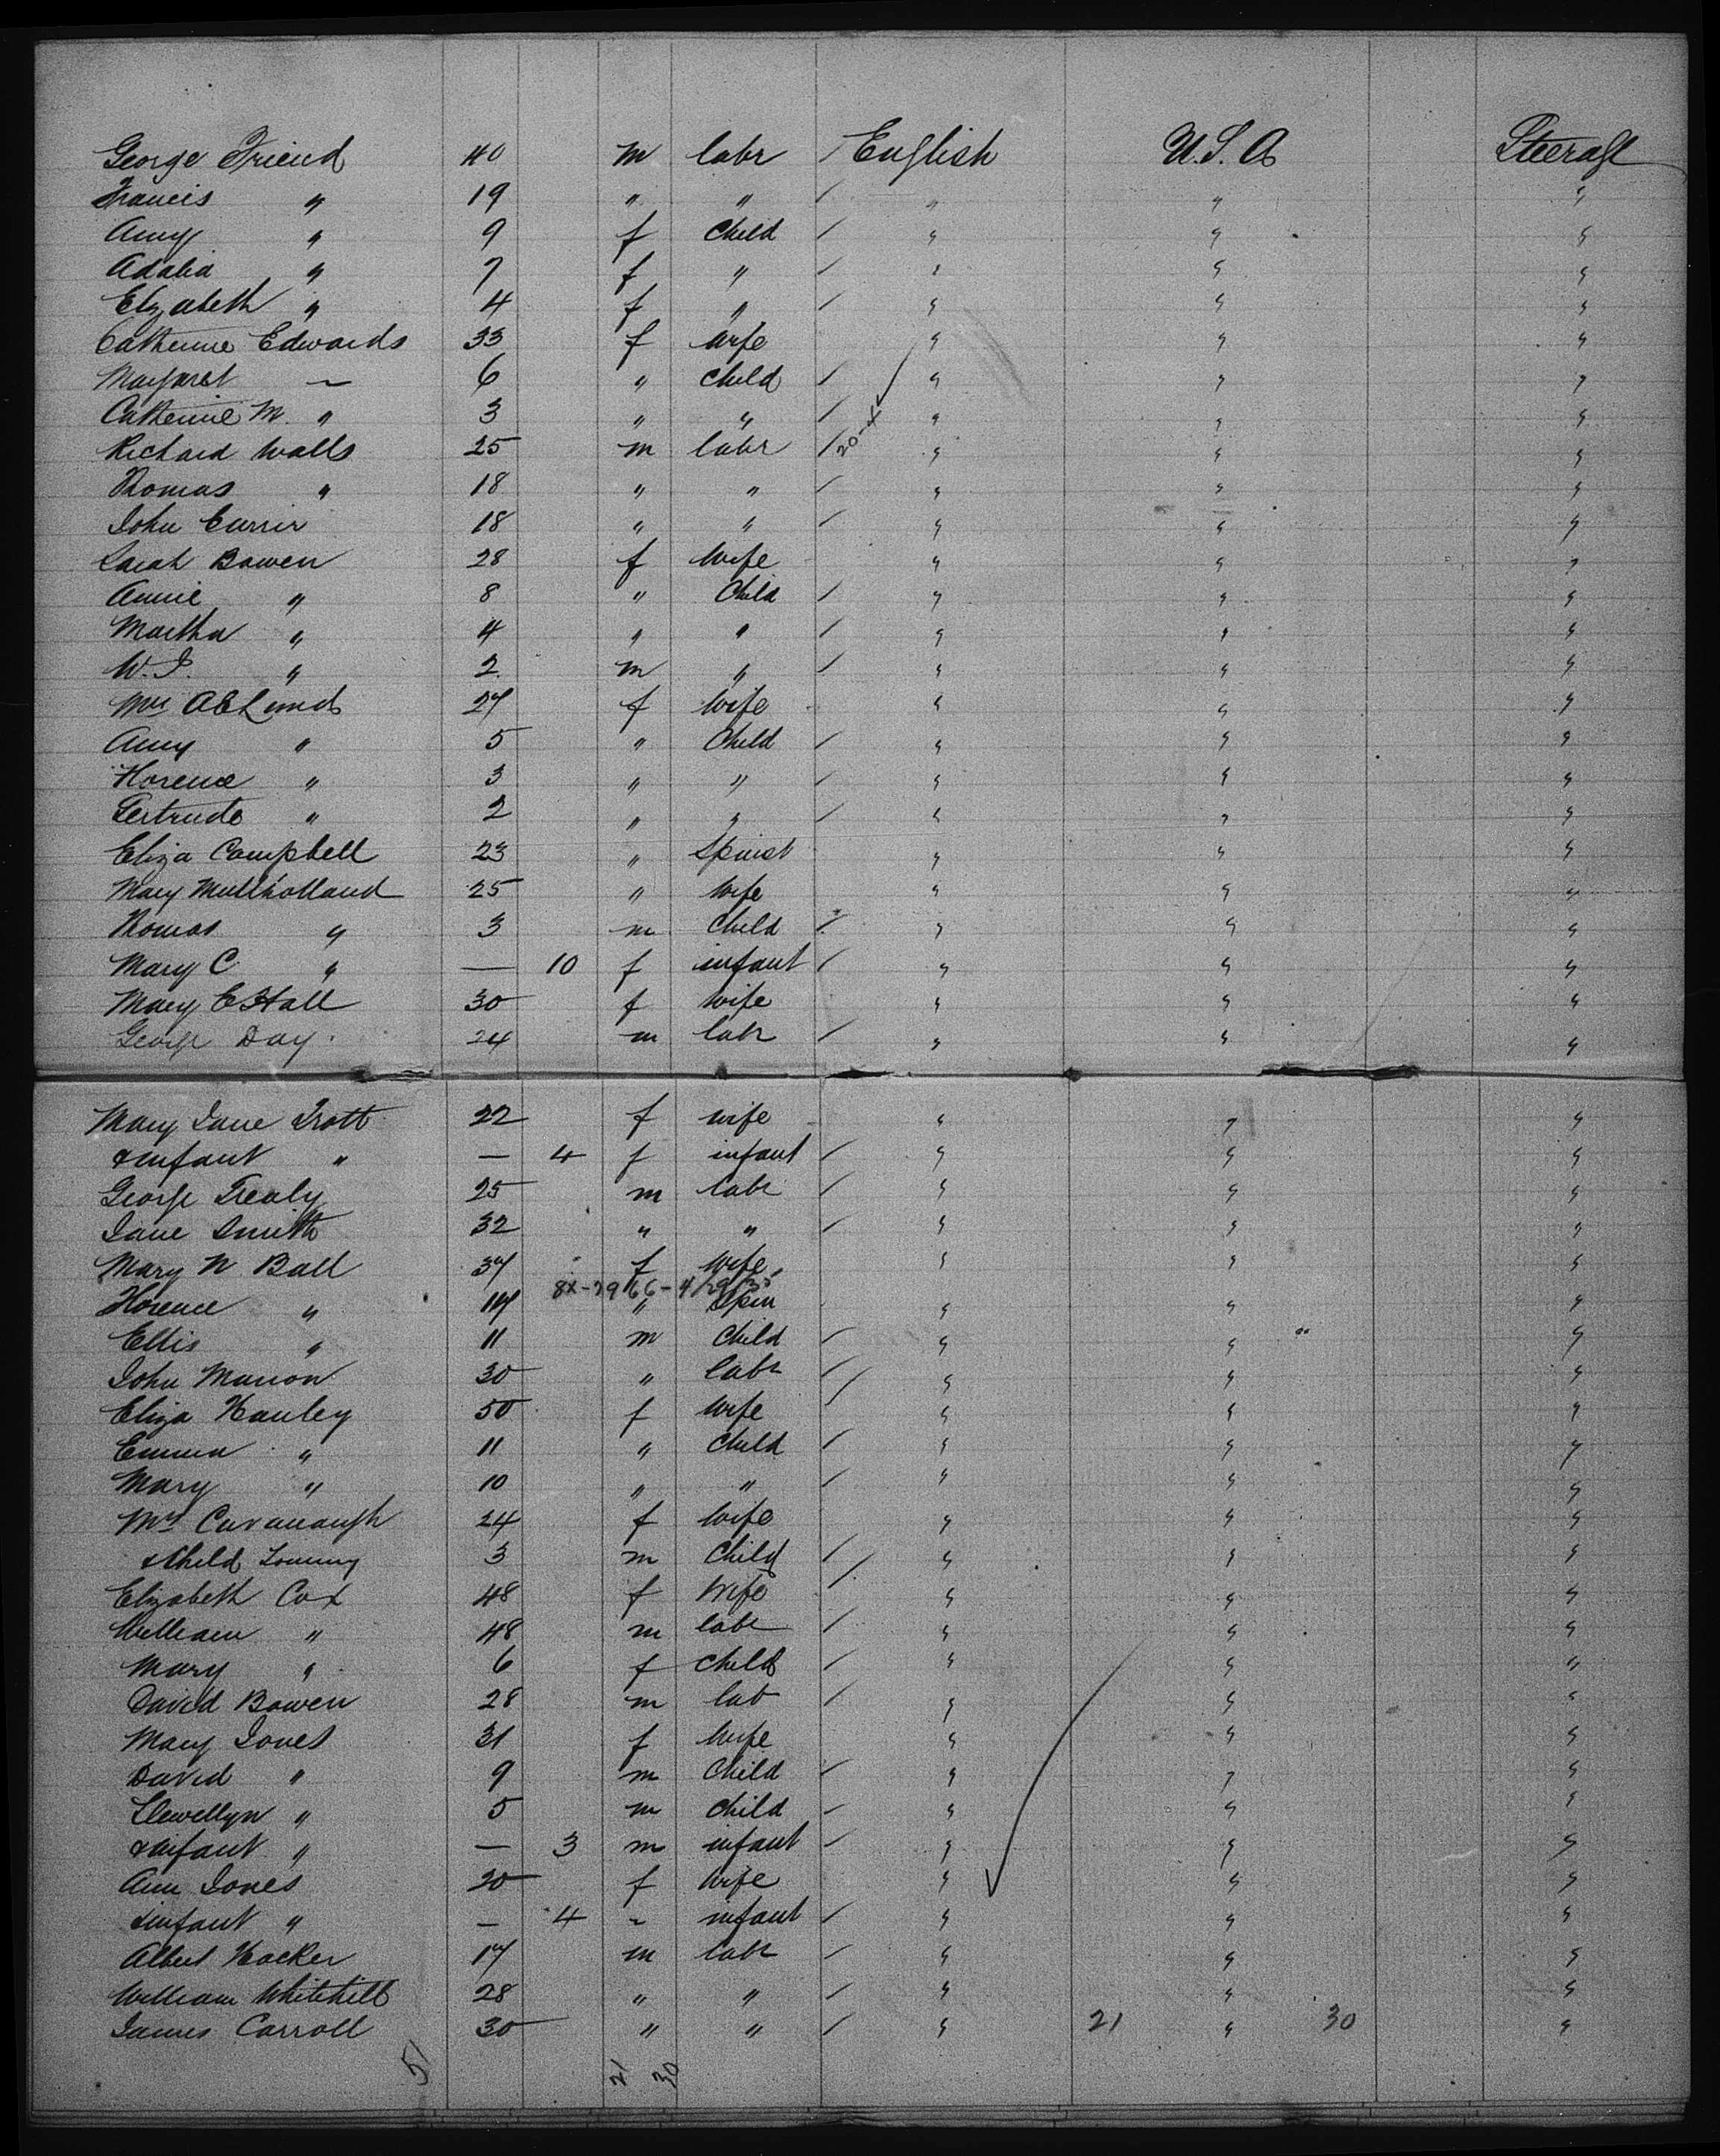 George Friend 40 m labr / English U.S.A Steerage
Francis " 19 " " / " " "
Amy " 9 f Child / " " "
Adalia " 7 f " / " " "
Elizabeth " 4 f " / " " "
Catherine Edwards 33 f wife " " "
Margaret — 6 " child / " " "
Catherine M. " 3 " " / " " "
Richard Walls 25 m labr / " " "
Thomas " 18 " " / " " "
John Currir 18 " " / " " "
Sarah Bowen 28 f Wife " " "
Annie " 8 " Child / " " "
Martha " 4 " " / " " "
W. J. " 2 m " / " " "
Mrs A E Lund 27 f Wife " " "
Amy " 5 " Child / " " "
Florence " 3 " " / " " "
Gertrude " 2 " " / " " "
Eliza Campbell 23 " Spinst " " "
Mary Mullholland 25 " Wife " " "
Thomas " 3 m Child / " " "
Mary C " — 10 f infant / " " "
Mary E Hall 30 f wife " " "
George Day 24 m labr / " " "
Mary Jane Trott 22 f wife " " "
& infant " — 4 f infant / " " "
George Trealy 25 m labr / " " "
Jane Smith 32 " " / " " "
Mary N Ball 37 f Wife " " "
8x-2966-4/29/35
Florence " 17 " Spin " " "
Ellis " 11 m Child / " " "
John Marron 30 " labr / " " "
Eliza Hanley 50 f Wife / " " "
Emma " 11 " Child / " " "
Mary " 10 " " / " " "
Mrs Cavanaugh 24 f Wife " " "
& Child Tommy 3 m Child / " " "
Elizabeth Cox 48 f Wife / " " "
William " 48 m labr / " " "
Mary " 6 f child / " " "
David Bowen 28 m lab / " " "
Mary Jones 31 f Wife " " "
David " 9 m Child / " " "
Llewellyn " 5 m child / " " "
& infant " — 3 m infant / " " "
Ann Jones 20 f Wife " " "
& infant " — 4 ~ infant / " " "
Albert Hocker 17 m labr / " " "
William Whitehill 28 " " / " " "
James Carroll 30 " " / " 21 " 30 "
51 21 30